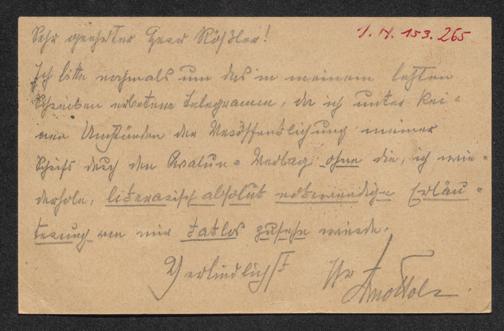 I. N. 153.265
Sehr geehrter Herr Rößler!
Ich bitte nochmals um das in meinem letzten
Schreiben erbetene Telegramm, da ich unter kei-
nen Umständen der Veröffentlichung meiner
durch den Avalun-Verlag ohne die, ich wie-
derhole, literarisch absolut notwendige Erläu-
terung von mir tatlos zusehn würde.
Verbindlichst
Ihr
Arno Holz